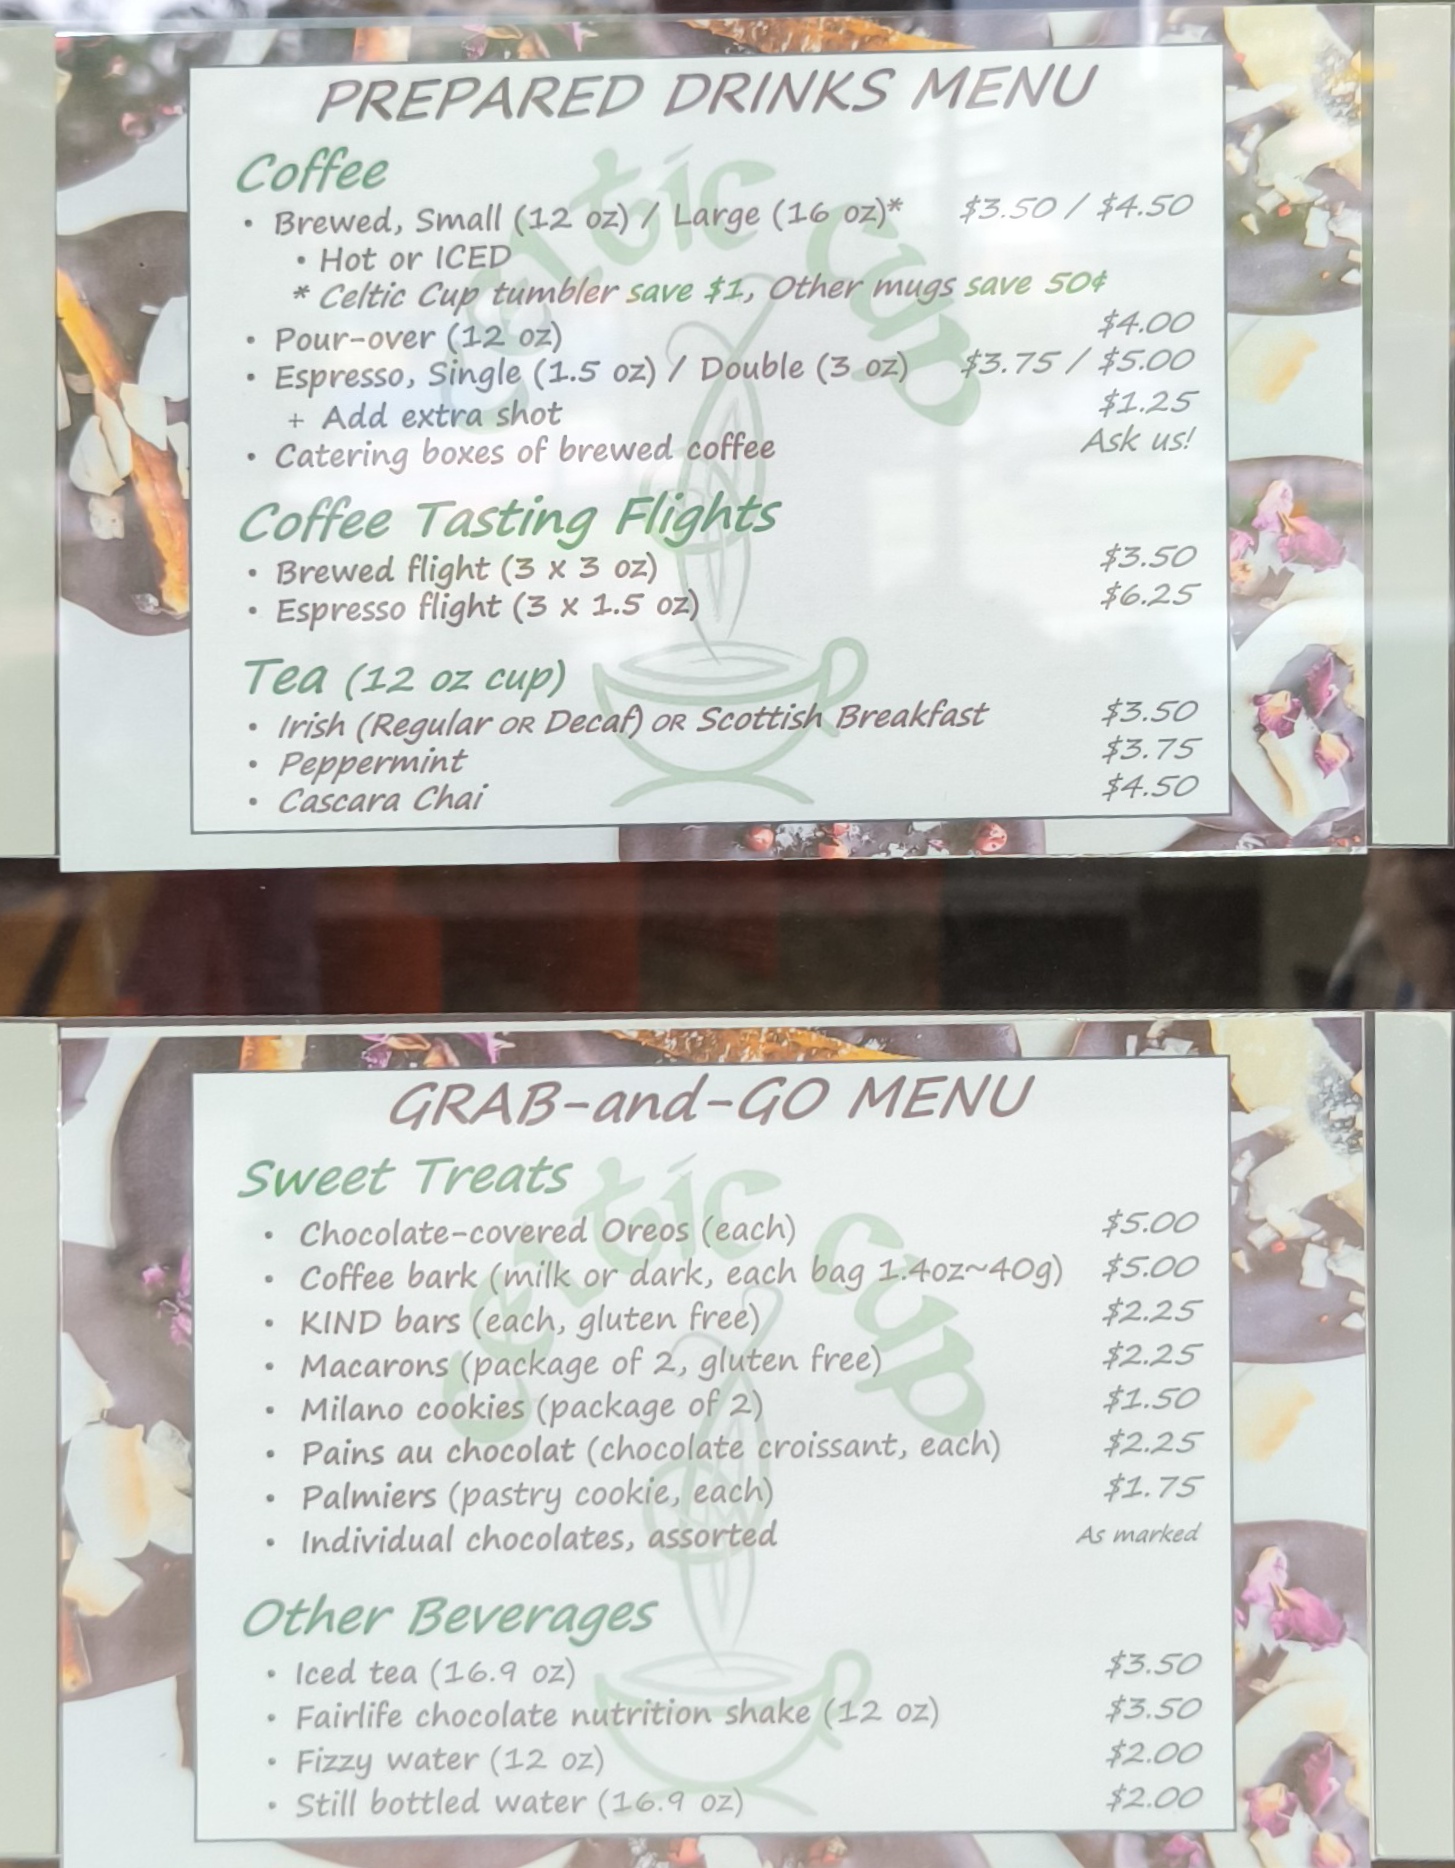 PREPARED DRINKS MENU
Coffee
• Brewed, Small (12 oz) / Large (16 oz)* $3.50 / $4.50
• Hot or ICED
* Celtic Cup tumbler save $1, Other mugs save 50¢
• Pour-over (12 oz) $4.00
• Espresso, Single (1.5 oz) / Double (3 oz) $3.75 / $5.00
+ Add extra shot $1.25
• Catering boxes of brewed coffee Ask us!
Coffee Tasting Flights
• Brewed flight (3 x 3 oz) $3.50
• Espresso flight (3 x 1.5 oz) $6.25
Tea (12 oz cup)
• Irish (Regular OR Decaf) OR Scottish Breakfast $3.50
• Peppermint $3.75
• Cascara Chai $4.50
Celtic Cup
GRAB-and-GO MENU
Sweet Treats
• Chocolate-covered Oreos (each) $5.00
• Coffee bark (milk or dark, each bag 1.4oz~40g) $5.00
• KIND bars (each, gluten free) $2.25
• Macarons (package of 2, gluten free) $2.25
• Milano cookies (package of 2) $1.50
• Pains au chocolat (chocolate croissant, each) $2.25
• Palmiers (pastry cookie, each) $1.75
• Individual chocolates, assorted As marked
Other Beverages
• Iced tea (16.9 oz) $3.50
• Fairlife chocolate nutrition shake (12 oz) $3.50
• Fizzy water (12 oz) $2.00
• Still bottled water (16.9 oz) $2.00
Celtic Cup